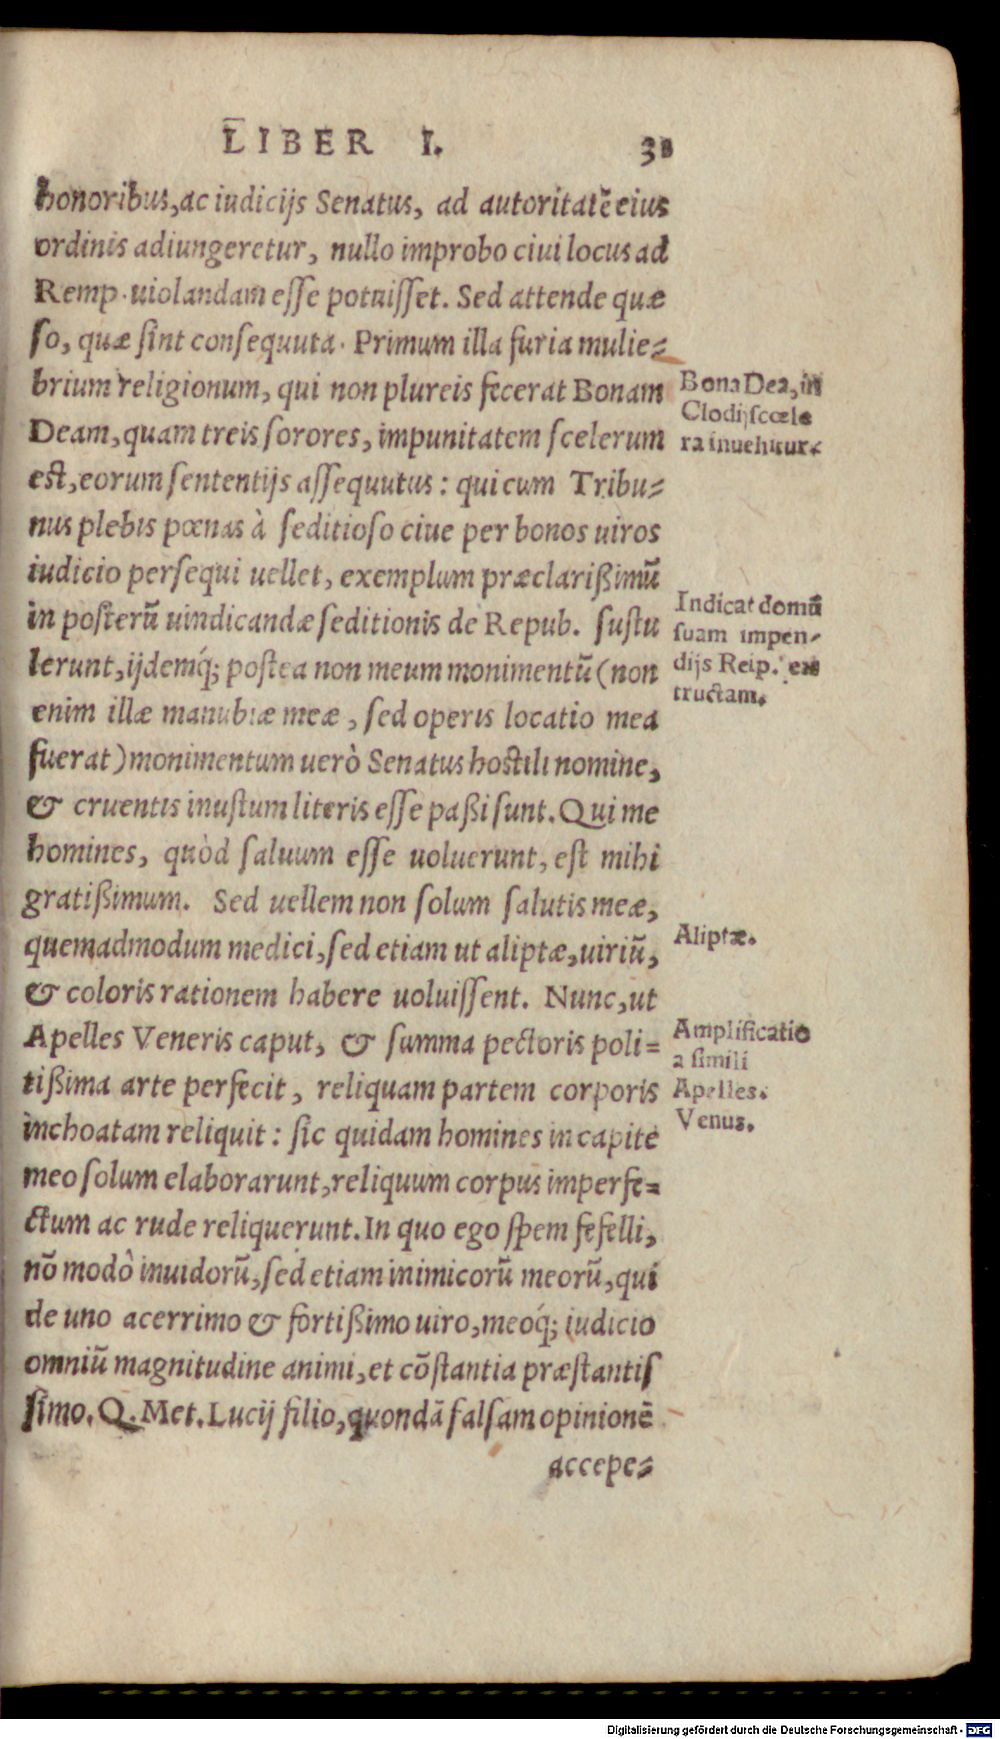 LIBER I.
honoribus, ac iudicijs Senatus, ad autoritatē eius
ordinis adiungeretur, nullo improbo ciui locus ad
Remp. uiolandam esse potuisset. Sed attende quæ
so, quæ sint consequuta. Primum illa furia mulie-
brium religionum, qui non plureis fecerat Bonam
Deam, quam treis sorores, impunitatem scelerum
est, eorum sententijs assequutus: qui cum Tribu-
nus plebis pœnas à seditioso ciue per bonos uiros
iudicio persequi uellet, exemplum præclarißimū
in posterū uindicandæ seditionis de Repub. sustu
lerunt, ijdemq́; postea non meum monimentū (non
enim illæ manubiæ meæ, sed operis locatio mea
fuerat) monimentum uerò Senatus hostili nomine,
& cruentis inustum literis esse paßi sunt. Qui me
homines, quòd saluum esse uoluerunt, est mihi
gratißimum. Sed uellem non solum salutis meæ,
quemadmodum medici, sed etiam ut aliptæ, uiriū,
& coloris rationem habere uoluissent. Nunc, ut
Apelles Veneris caput, & summa pectoris poli-
tißima arte perfecit, reliquam partem corporis
inchoatam reliquit: sic quidam homines in capite
meo solum elaborarunt, reliquum corpus imperfe-
ctum ac rude reliquerunt. In quo ego spem fefelli,
nō modò inuidorū, sed etiam inimicorū meorū, qui
de uno acerrimo & fortißimo uiro, meoq́; iudicio
omniū magnitudine animi, et cōstantia præstantis
simo. Q. Met. Lucij filio, quondā falsam opinionē
accepe-
Bona Dea, in
Clodij scœle
ra inuehitur.
Indicat domū
suam impen-
dijs Reip. ex
tructam.
Aliptæ.
Amplificatio
a simili
Apelles.
Venus.
Digitalisierung gefördert durch die Deutsche Forschungsgemeinschaft - DFG